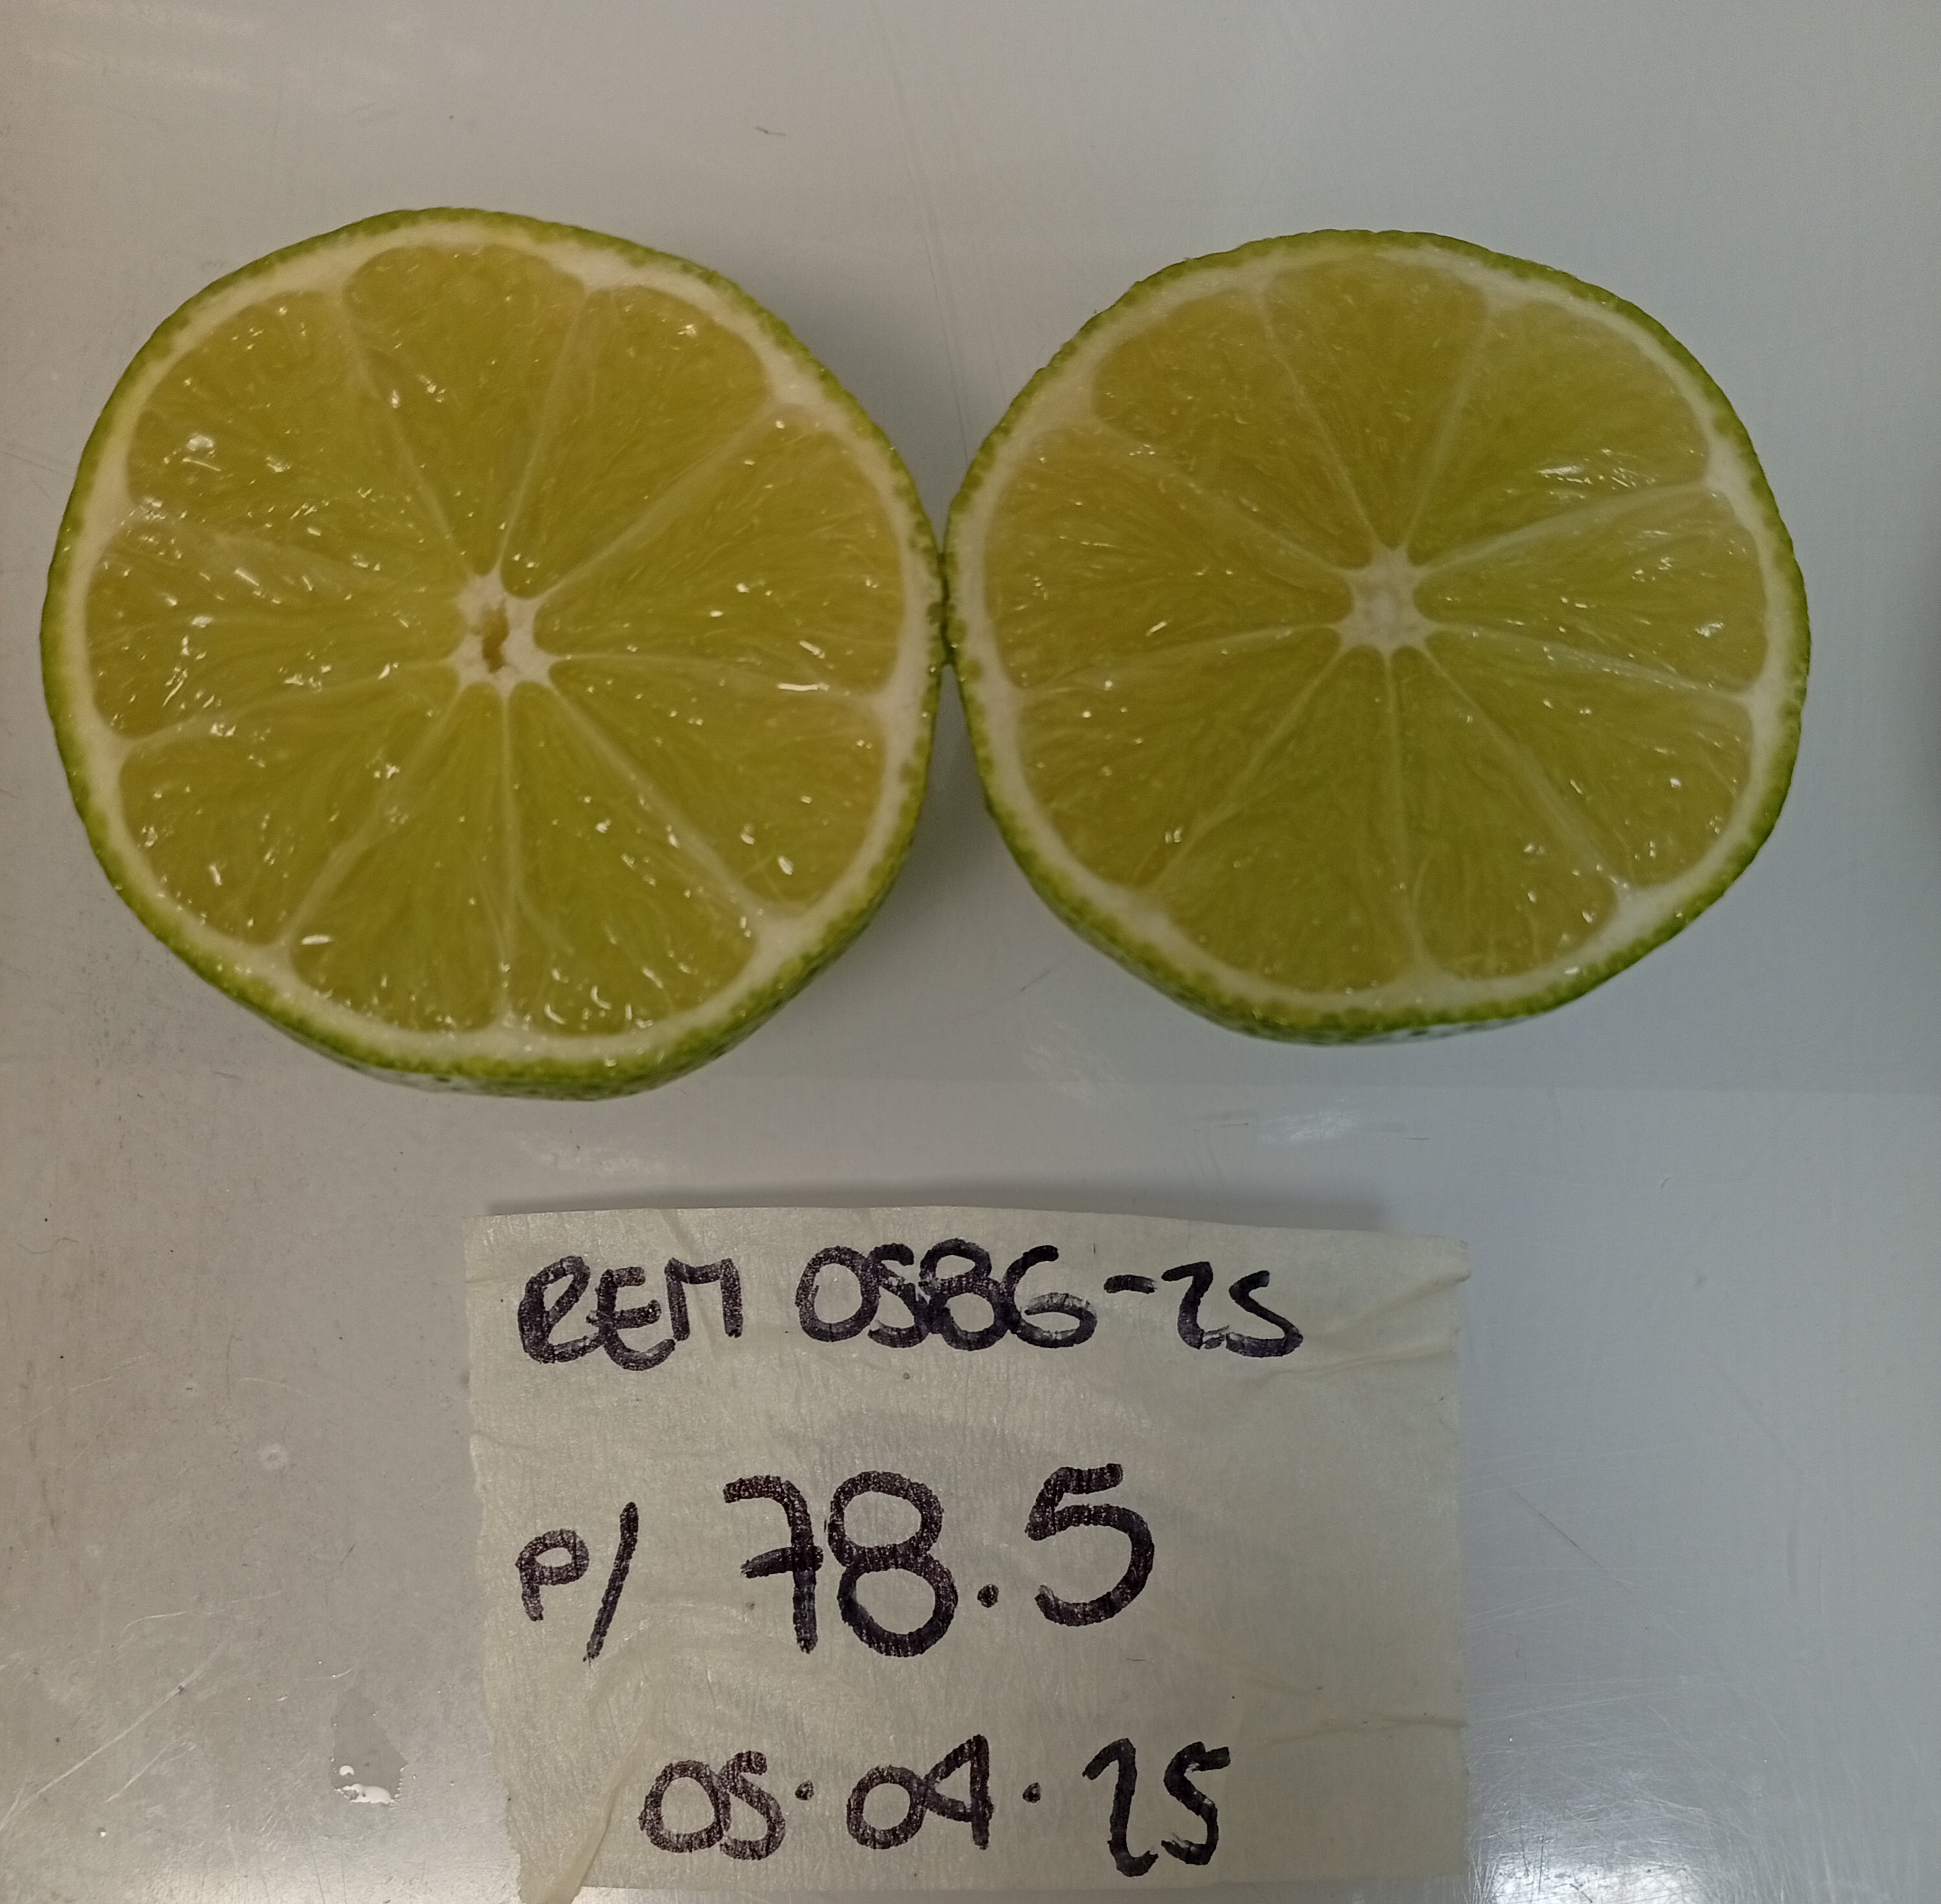 REM 0586-25
P/ 78.5
05.04.25